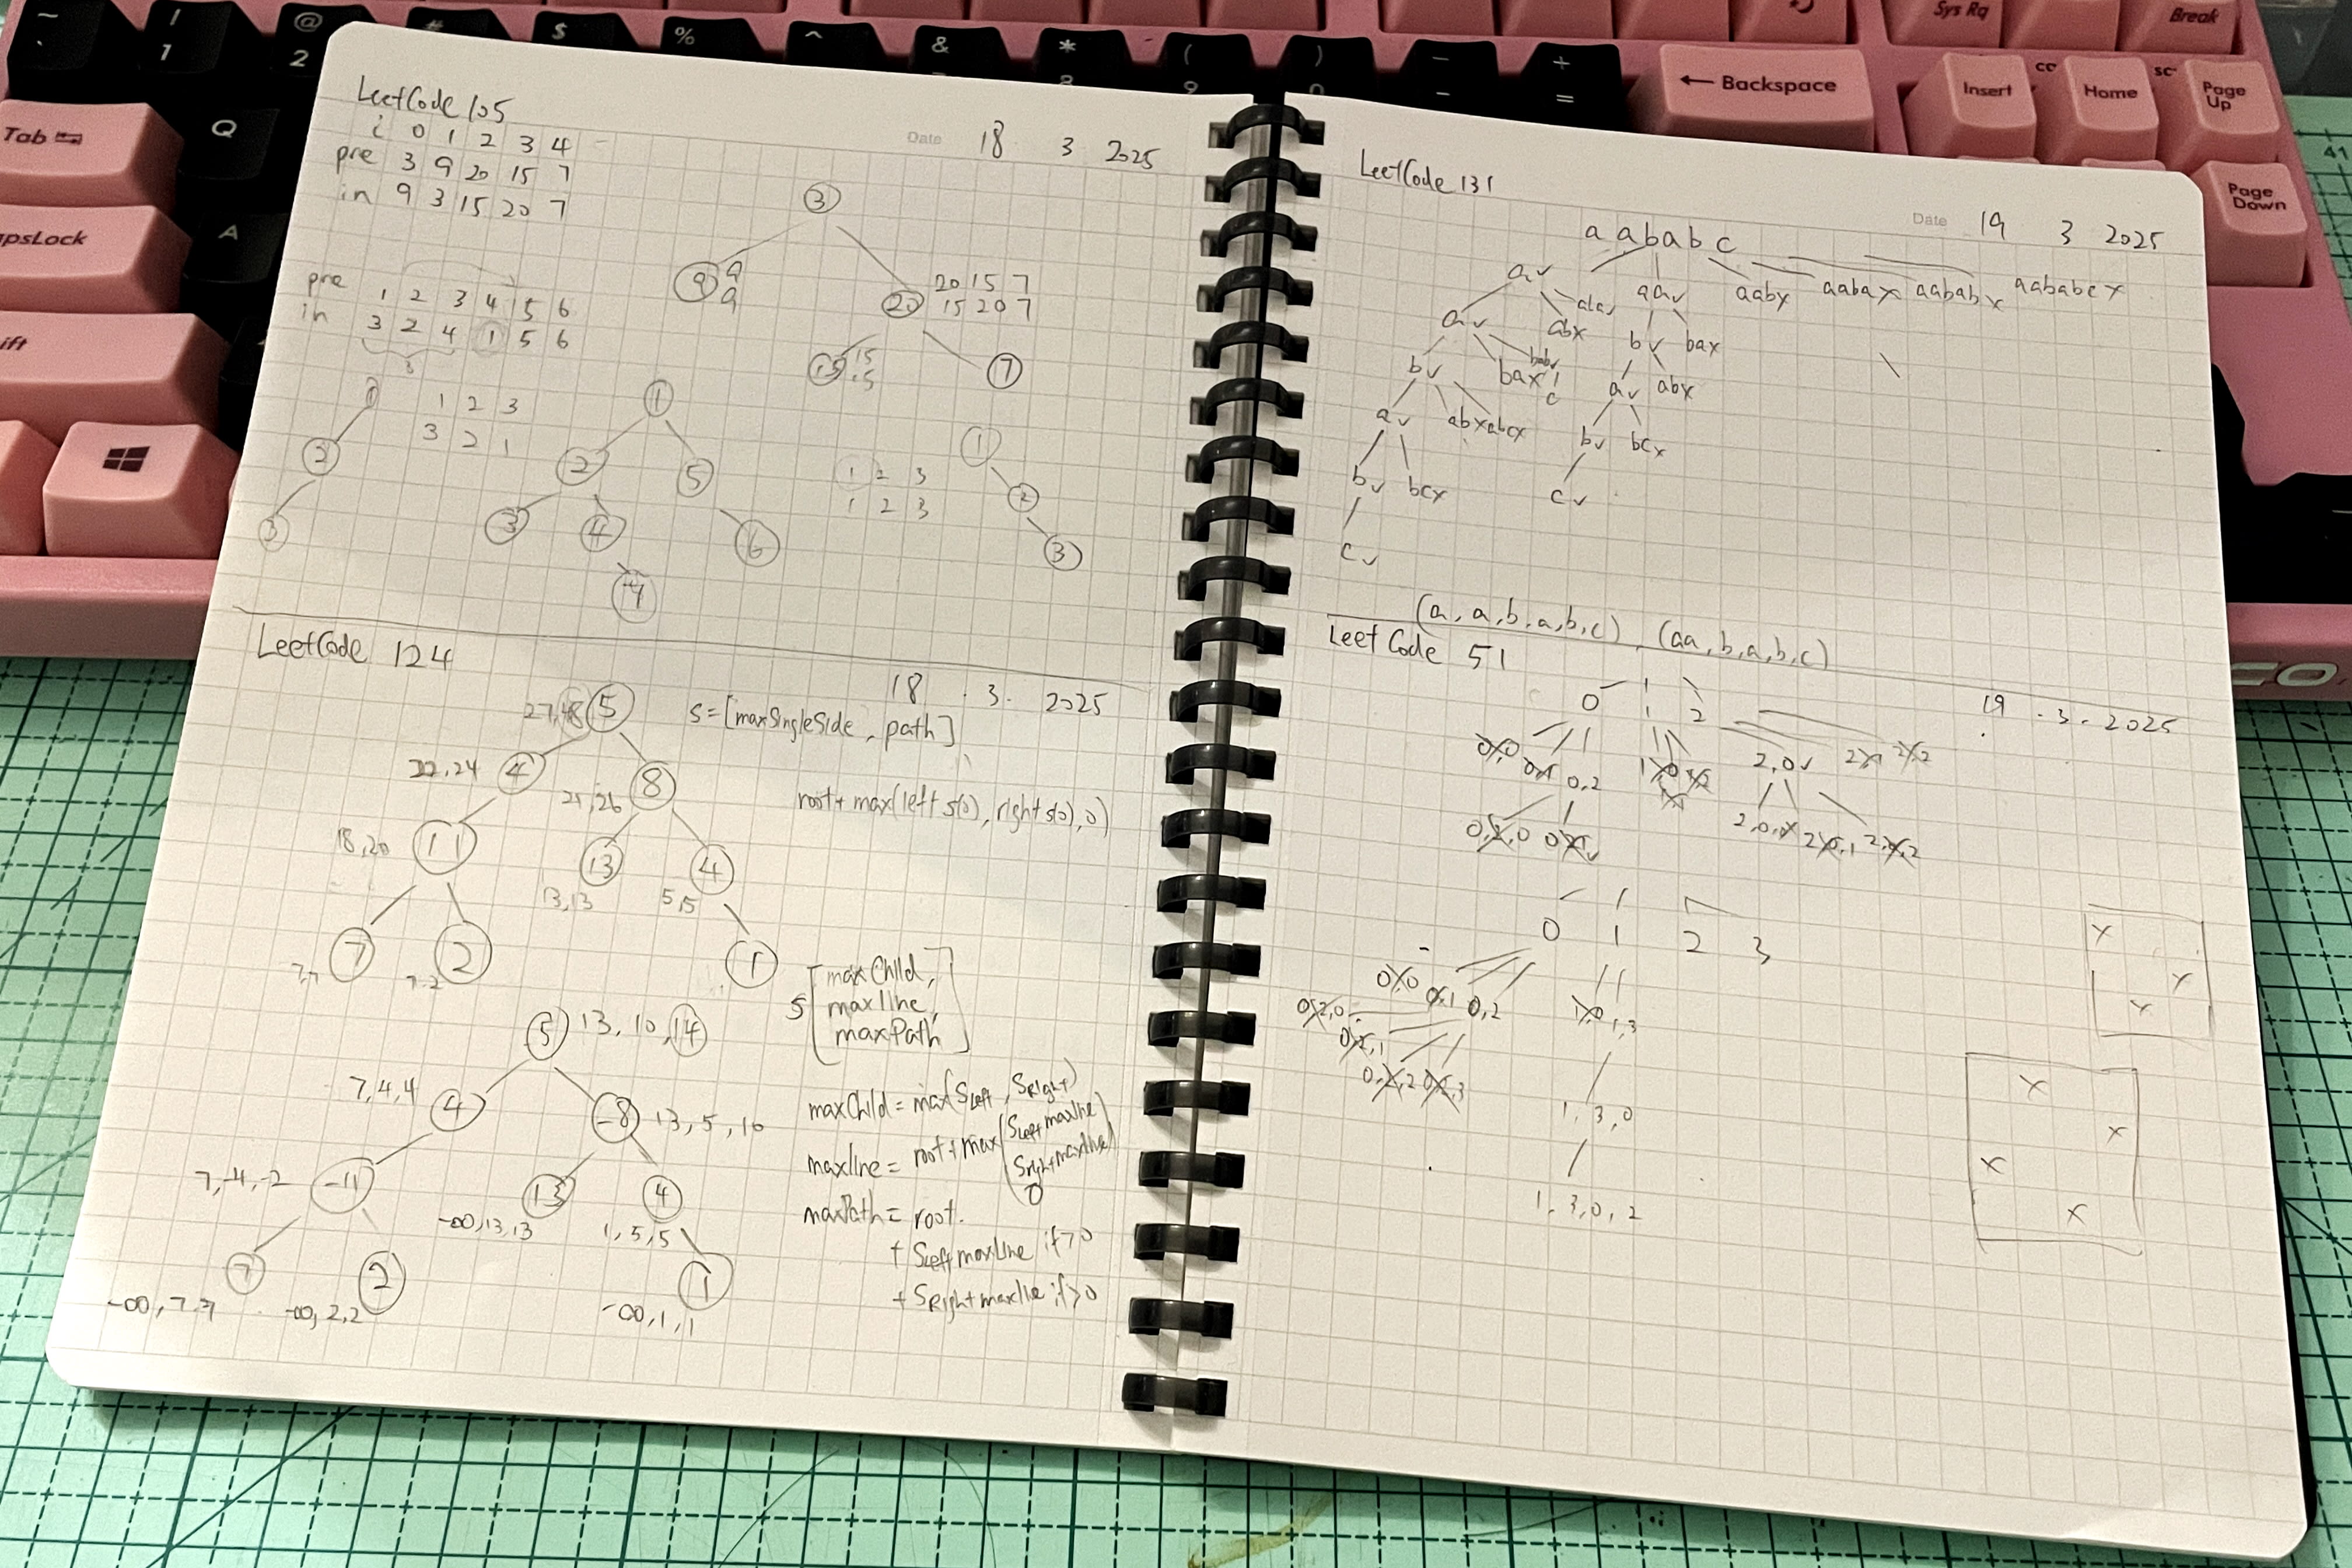 LeetCode 105
Date 18 3 2025
i 0 1 2 3 4
pre 3 9 20 15 7
in 9 3 15 20 7
3
9 9
9
20 20 15 7
15 20 7
15 15
15
7
pre 1 2 3 4 5 6
in 3 2 4 1 5 6
3
1
2
3
1 2 3
3 2 1
1
2 5
3 4 6
1 2 3
1 2 3
1
2
3
LeetCode 124
18 . 3 . 2025
5
S = [maxSingleSide, path]
22, 24 4
8 21, 26
root + max(left s(0), right s(0), 0)
18, 20 11
13 4
13, 13 5, 5
7 2 1
7, 7
S [maxChild,
maxline,
maxPath]
5 13, 10, 14
7, 4, 4 4
-8 13, 5, 10
maxChild = max(SLeft, SRight)
maxline = root + max(SLeft maxline
SRight maxline
0)
7, -4, -2 -11
13 4
-∞, 13, 13 1, 5, 5
maxPath = root.
+ SLeft maxLine if > 0
+ SRight maxline if > 0
7 2 1
-∞, 7, 7 -∞, 2, 2 -∞, 1, 1
LeetCode 131
Date 19 3 2025
a a b a b c
a✓ aa✓ aabx aabax aababx aababcx
a✓ abx b✓ bax
b✓ bax bab✓ a✓ abx
c
a✓ abx abcx b✓ bcx
b✓ bcx c✓
c✓
(a, a, b, a, b, c), (aa, b, a, b, c)
LeetCode 51
19 . 3 . 2025
0 1 2
0,0 0,1 0,2 1,0 2,0✓ 2,1 2,2
0,2,0 2,0,1 2,0,2
0 1 2 3
0,0 0,1 0,2 1,0 1,3
0,2,0
0,2,1
0,2,2 0,2,3
1, 3, 0
1, 3, 0, 2
x
x
x
x
x
x
x
~
`
!
1
@
2
$
%
^
&
*
8
(
9
)
0
_
-
+
=
← Backspace
Sys Rq
Break
Insert
Home
Page
Up
Page
Down
Tab
Q
A